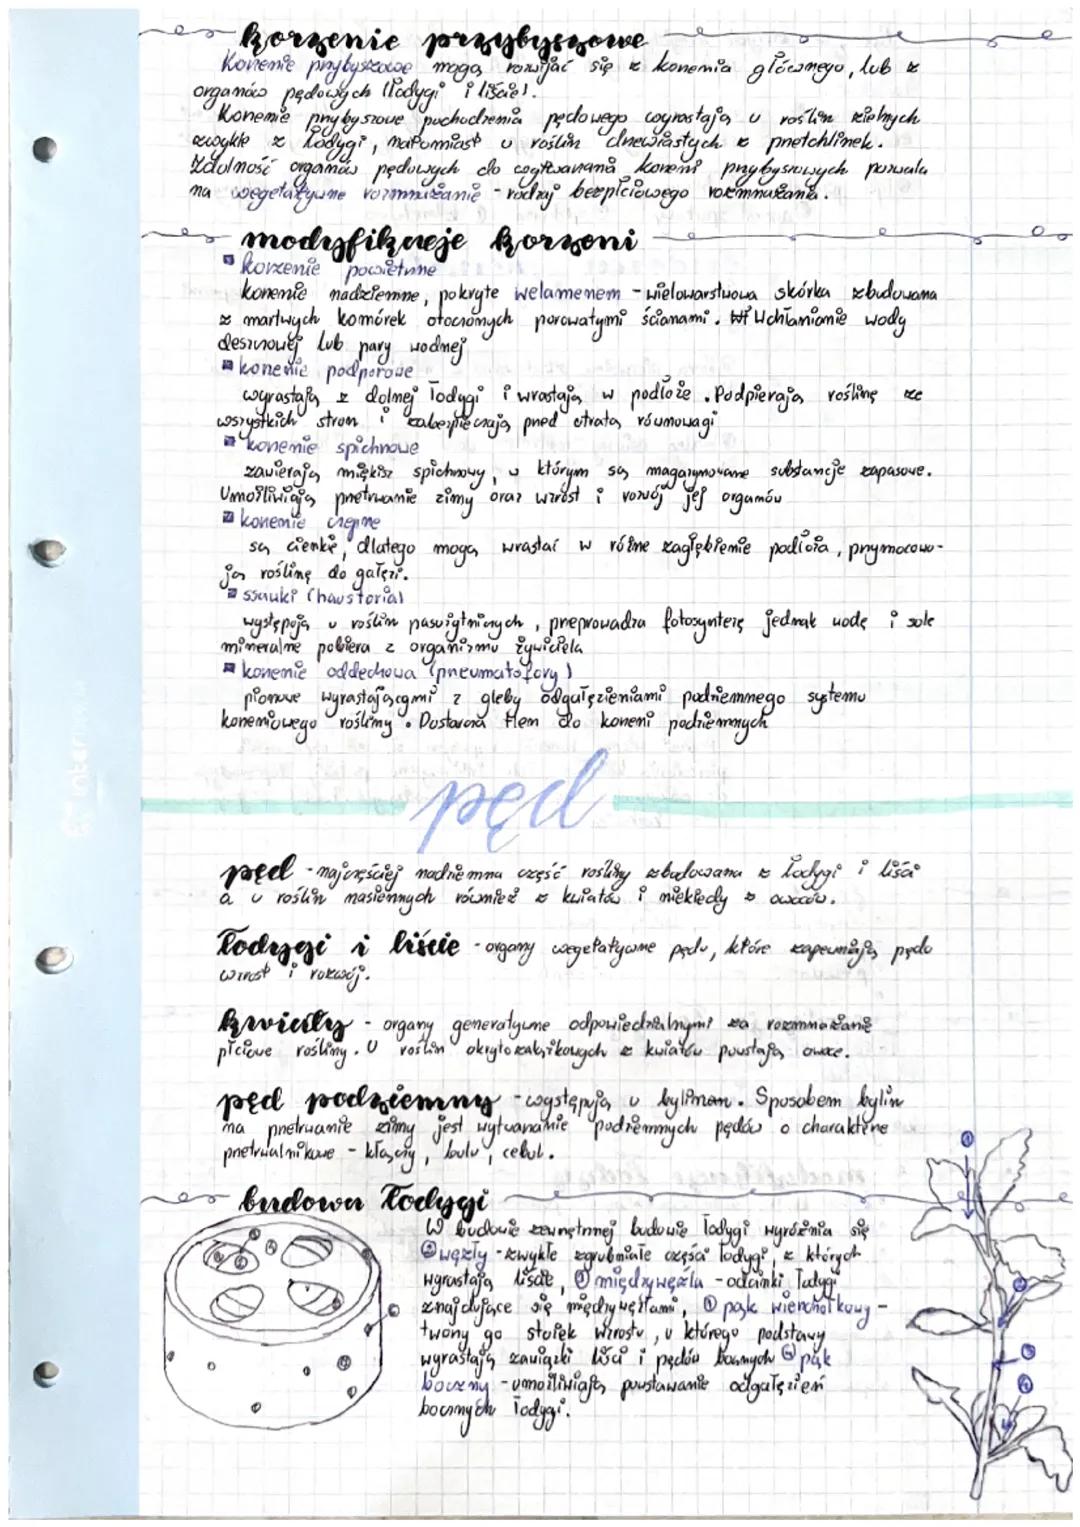 korzenie przybyszowe
Korzenie przybyszowe mogą rozwijać się z korzenia głównego, lub z
organów pędowych (łodygi i liście).
Korzenie przybyszowe pochodzenia pędowego wyrastają u roślin zielnych
zwykle z łodygi, natomiast u roślin drzewiastych z przetchlinek.
Zdolność organów pędowych do wytwarzania korzeni przybyszowych pozwala
na wegetatywne rozmnażanie - rodzaj bezpłciowego rozmnażania.
modyfikacje korzeni
korzenie powietrzne
korzenie nadziemne, pokryte welamenem - wielowarstwowa skórka zbudowana
z martwych komórek otoczonych porowatymi ścianami. Wchłanianie wody
deszczowej lub pary wodnej
korzenie podporowe
wyrastają z dolnej łodygi i wrastają w podłoże. Podpierają roślinę ze
wszystkich stron i zabezpieczają przed utratą równowagi
korzenie spichrzowe
zawierają miękisz spichrzowy, w którym są magazynowane substancje zapasowe.
Umożliwiają przetrwanie zimy oraz wzrost i rozwój jej organów
korzenie czepne
są cienkie, dlatego mogą wrastać w różne zagłębienie podłoża, przymocowu-
ją roślinę do gałęzi.
ssawki (haustoria)
występują u roślin pasożytniczych, przeprowadza fotosyntezę jednak wodę i sole
mineralne pobiera z organizmu żywiciela
korzenie oddechowa (pneumatofory)
pionowe wyrastającymi z gleby odgałęzieniami podziemnego systemu
korzeniowego rośliny. Dostarcza tlen do korzeni podziemnych
interdruk
pęd
pęd - najczęściej nadziemna część rośliny zbudowana z łodygi i liści
a u roślin nasiennych również z kwiatów i niekiedy z owoców.
Łodygi i liście - organy wegetatywne pędu, które zapewniają pędu
wzrost i rozwój.
kwiaty - organy generatywne odpowiedzialnymi za rozmnażanie
płciowe rośliny. U roślin okrytozalążkowych z kwiatów powstają owoce.
pęd podziemny - występują u bylinan. Sposobem bylin
na przetrwanie zimy jest wytwarzanie podziemnych pędów o charakterze
przetrwalnikowe - kłączy, bulw, cebul.
budowa łodygi
W budowie zewnętrznej budowie łodygi wyróżnia się
węzły - zwykle zgrubniałe części łodygi, z których
wyrastają liście, międzywęźla - odcinki łodygi
znajdujące się między węzłami, ① pąk wierzchołkowy -
twony go stożek wzrostu, u którego podstawy
wyrastają zawiązki liści i pędów bocznych ④ pąk
boczny - umożliwiają powstawanie odgałęzień
bocznych łodygi.